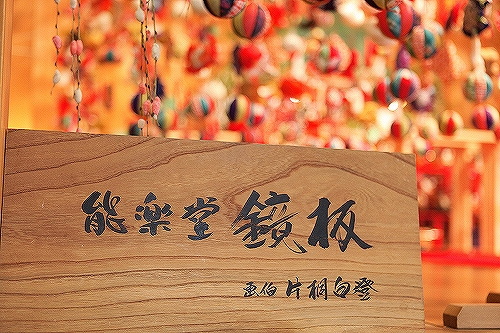 能楽堂 鏡板
画伯 片桐白登